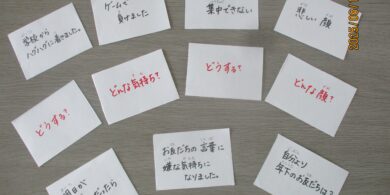 学校から
ハグハグに着きました。
ゲームで
負けました。
集中できない
悲しい顔
どうする?
どんな気持ち?
どうする?
どんな顔?
明日が
ったら
お友だちの言葉に
嫌な気持ちに
なりました。
自分より
年下のお友だちは?